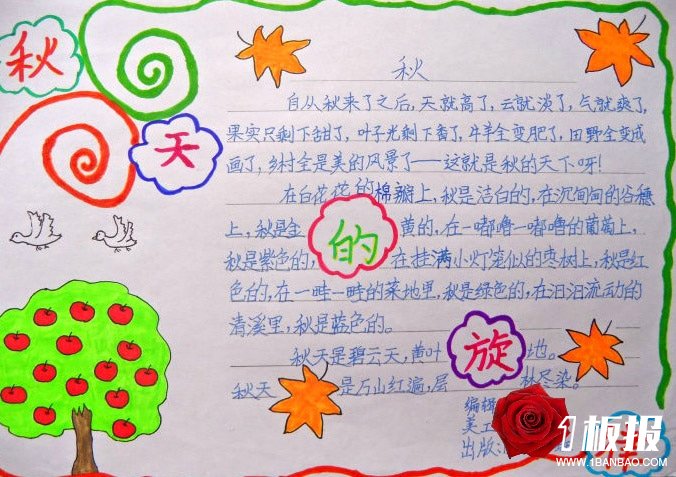 秋
天
的
旋
秋
自从秋来了之后,天就高了,云就淡了,气就爽了,
果实只剩下甜了,叶子光剩下香了,牛羊全变肥了,田野全变成
画了,乡村全是美的风景了——这就是秋的天下呀!
在白花花的棉瓣上,秋是洁白的,在沉甸甸的谷穗
上,秋是金 黄的,在一嘟噜一嘟噜的葡萄上,
秋是紫色的, 在挂满小灯笼似的枣树上,秋是红
色的,在一畦一畦的菜地里,秋是绿色的,在汩汩流动的
清溪里,秋是蓝色的。
秋天是碧云天,黄叶 地。
秋天 是万山红遍,层 林尽染。
编辑
美工
出版
1板报
WWW.1BANBAO.COM